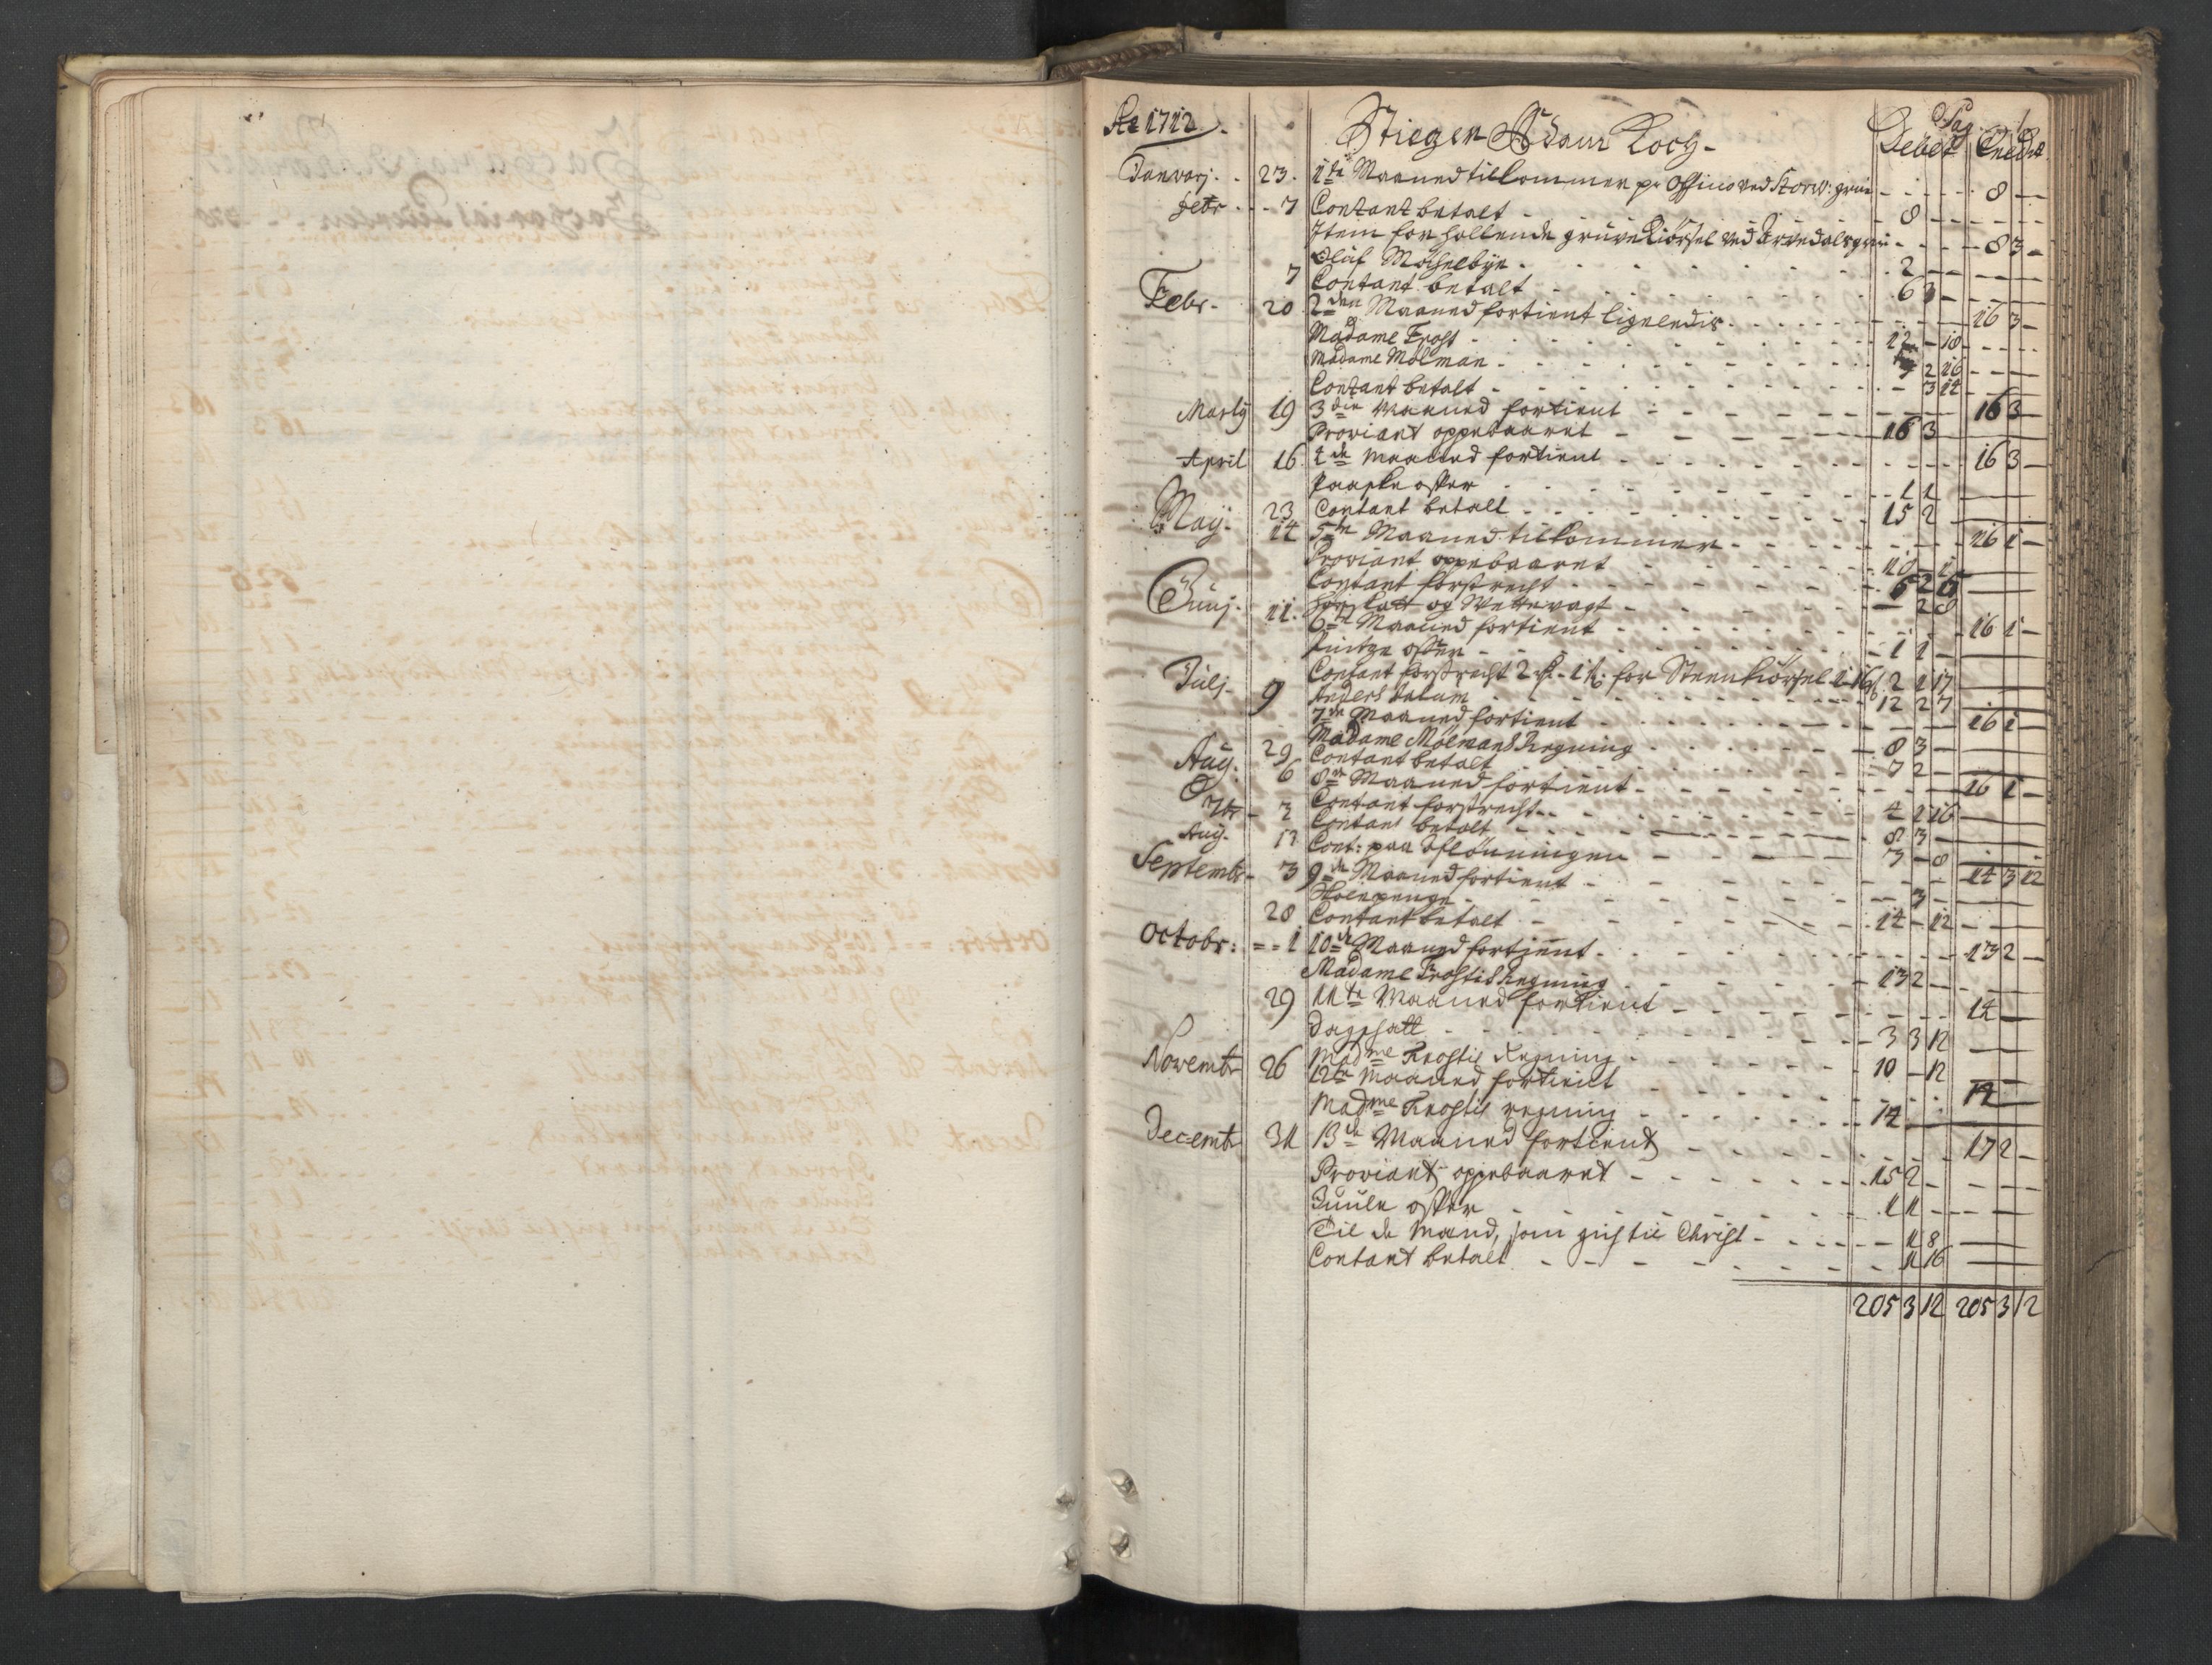 Ao 1712. Stieger Adam Koch Debet Pag Credit
Januarj. 23. 1te Maaned tilkommer pr Officio ved Storw: grue 8
Febr 7 Contant betalt 8
Item for hollende grüve Kiörsel ved Arvedals grue 8 3
Oluf Moshelbÿe 2
7 Contant betalt 6 3
Febr. 20 2den Maaned fortient ligeledis 16 3
Madame Frost 12 18
Madame Mölman 3 2 16
Contant betalt 3 14
Martÿ 19 3die Maaned fortient 16 3
Proviant oppebaaret 16 3
April 16 4de Maaned fortient 16 3
Paaske offer 1 1
23 Contant betalt 15 2
Maÿ. 14 5te Maaned tilkommer 16 1
Proviant oppebaaret
Contant forstrecht
Junj. Horskatt og Wettevagt 2 8
11. 6te Maaned fortient 16 1
Pintze offer 1 1
Contant forstrecht for Steen kiörsel 2 1 17
Julj. Anders Dalum 12 2 7
9 7de Maaned fortient 16 1
Madame Mölmans Regning 8 3
29 Contant betalt 7 2
Aug. 6 8de Maaned fortient 16 1
Contant forstrecht 4 2 16
7br 2 Contant betalt 8 3
Aug. 13 Cont: paa Aflönningen 3 8
Septembr 3 9de Maaned fortient 14 3 12
Skolepenge 3
28 Contant betalt 14 12
Octobr: 1 10de Maaned fortient 13 2
Madame Frostis Regning 13 2
29 11te Maaned fortient 14
Dagskatt 3 3 12
Madme Frostis Regning 10 12
Novembr 26 12te Maaned fortient 14
Madme Frostis regning 14
Decembr 31 13de Maaned fortient 17 2
Proviant oppebaaret 15 2
Juule offer 1 1
Til de Mænd, som gich til Christ 1 8
Contant betalt 1 16
205 3 12 205 3 12